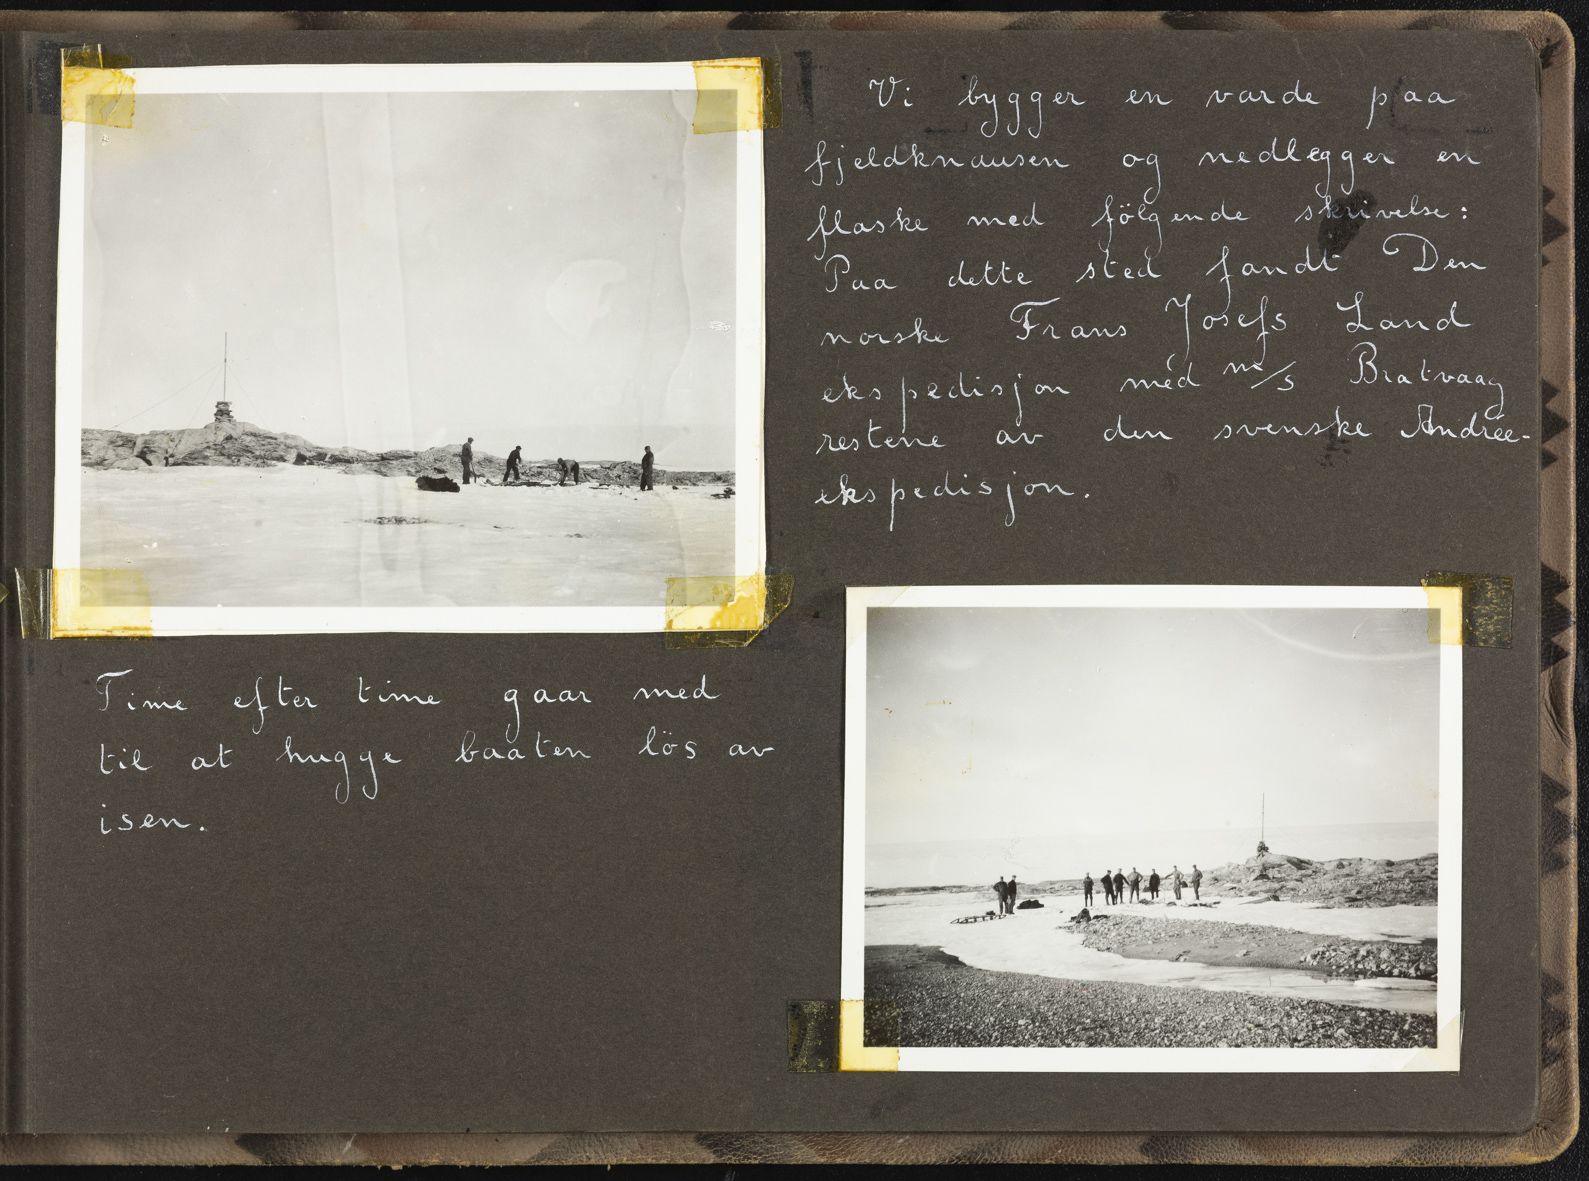 Vi bygger en varde paa
fjeldknausen og nedlegger en
flaske med fölgende skrivelse:
Paa dette sted fandt Den
norske Frans Josefs Land
ekspedisjon med m/s Bratvaag
restene av den svenske Andrée-
ekspedisjon.
Time efter time gaar med
til at hugge baaten lös av
isen.